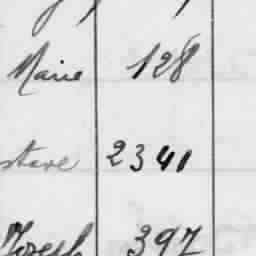 Marie 128
stave 2341
Joseph 397